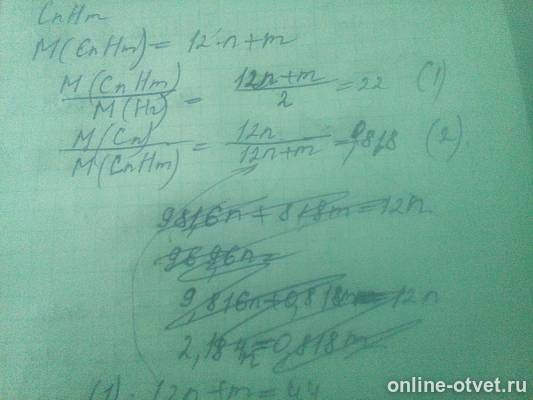 CnHm
M(CnHm) = 12·n+m
M(CnHm)/M(H2) = 12n+m/2 = 22 (1)
M(Cn)/M(CnHm) = 12n/12n+m = 0,818 (2)
9816n + 818m = 12n
9,816n+0,818m = 12n
2,184n = 0,818m
(1). 12n+m = 44
online-otvet.ru